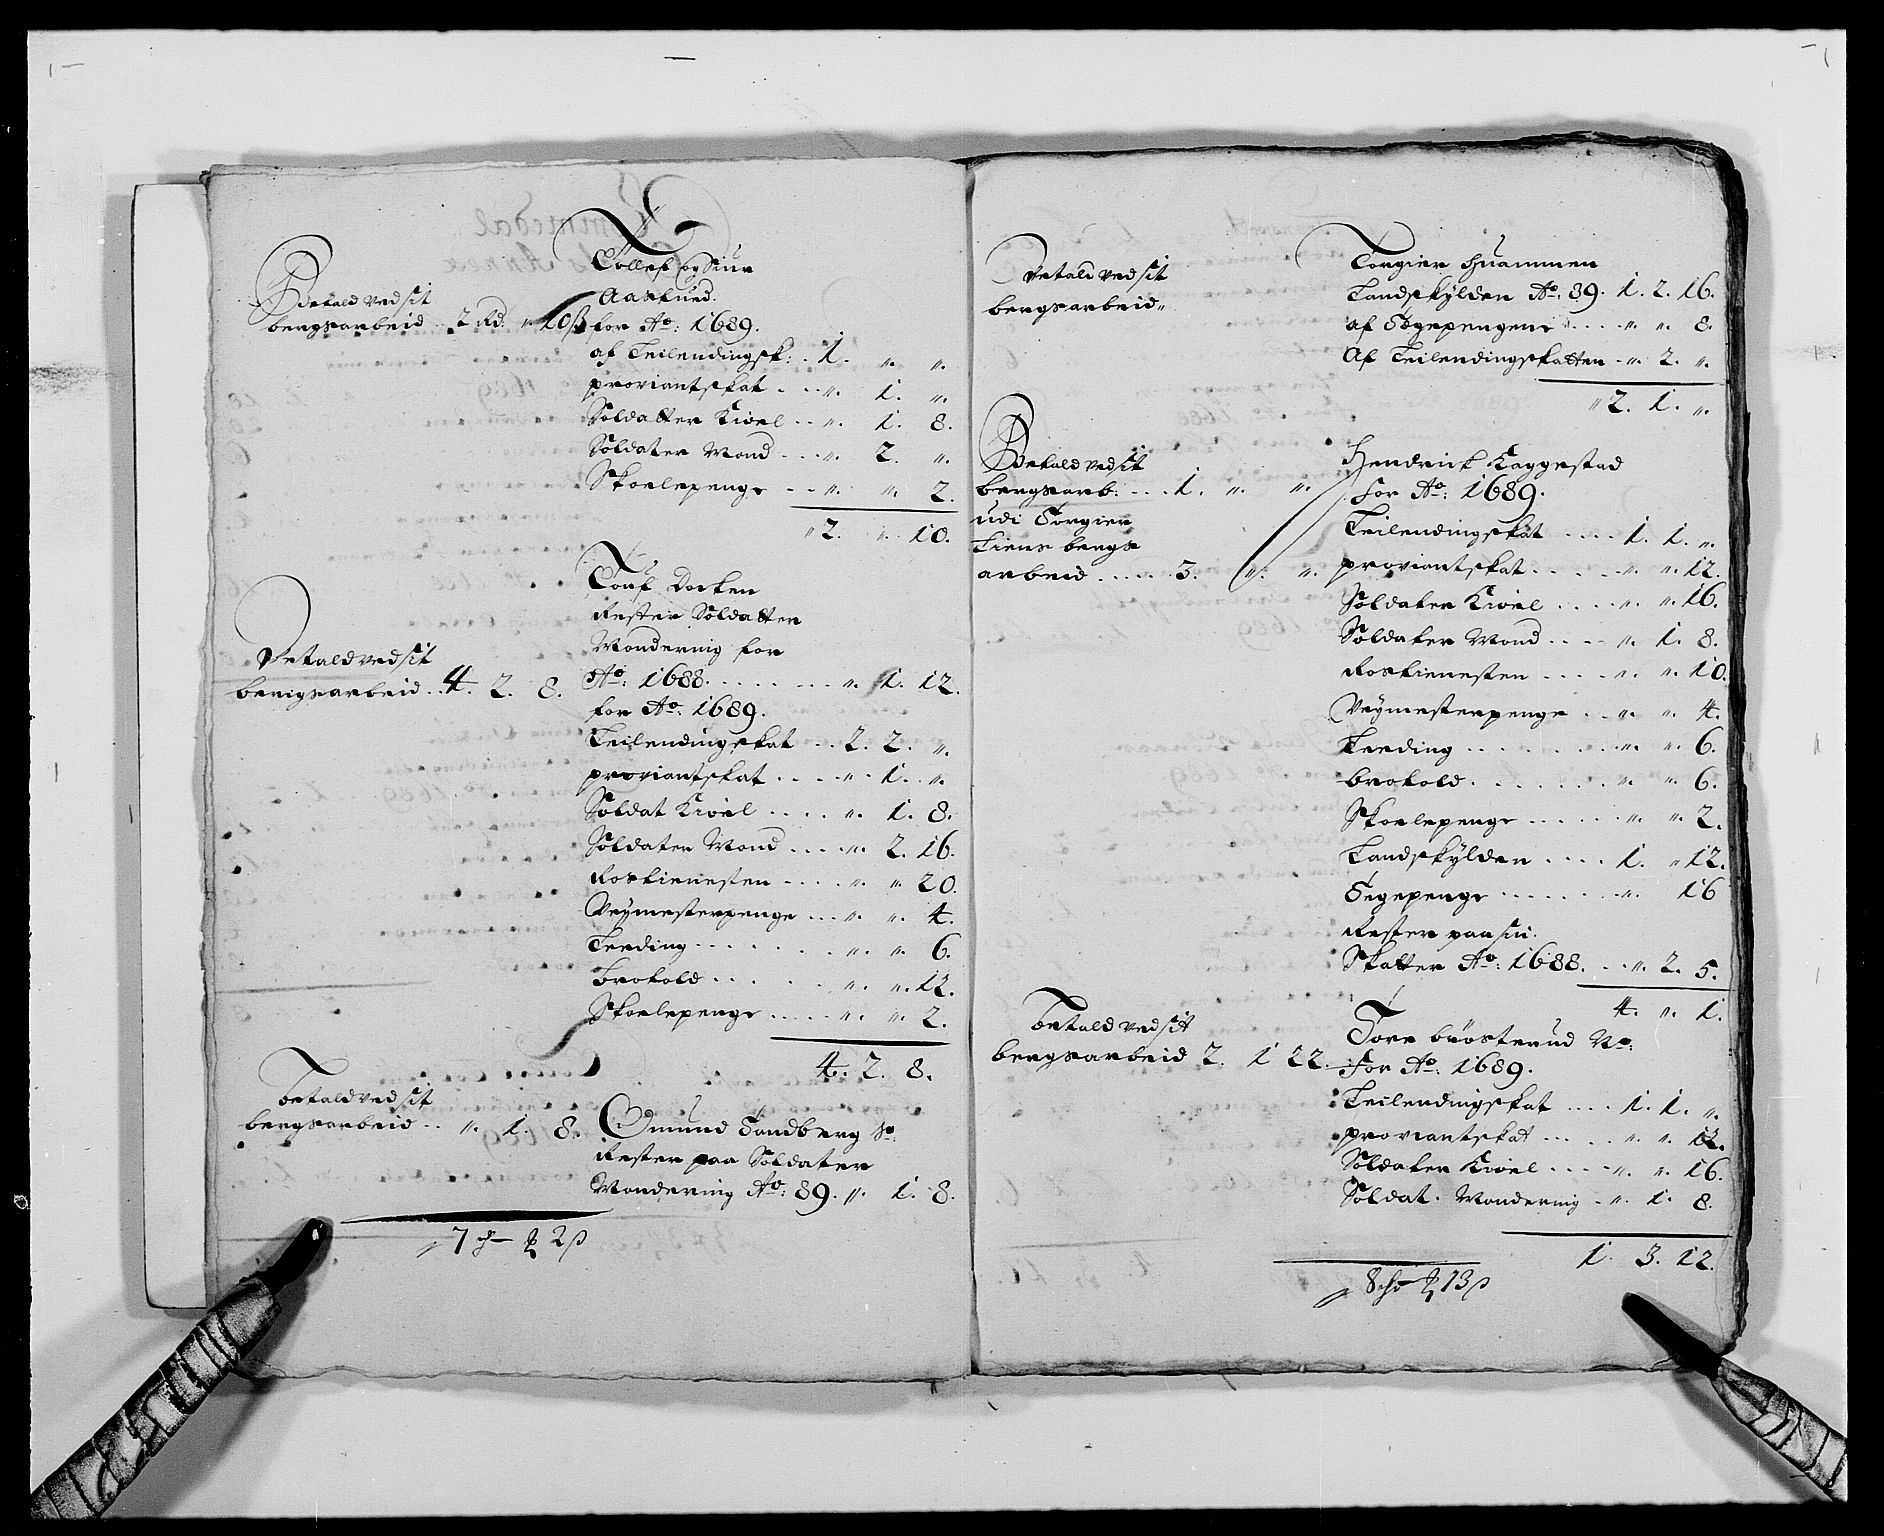 Betald ved sit
bergsarbeid .. 2 Rd. „ 10 ß
Tollef og Siur
Aaslued.
for Ao: 1689.
af Leilendingsk: . 1. „. „.
proviantskat . . . „. 1. „.
Soldatter Kioel . . „. 1. 8.
Soldater Mond . . . „. 2. „.
Skoelepenge . . „. „. 2.
„ 2. „. 10.
Betald ved sit
bergsarbeid . . 4. 2. 8.
Touf Dorken
Rester Soldatter
Mondering for
Ao: 1688. . . . . . „. 1. 12.
for Ao: 1689.
Leilendingskat . . 2. 2. „.
proviantskat . . . . „. 1. „.
Soldat Kioel . . . . „. 1. 8.
Soldater Mond . . . . „. 2. 16.
Rostienesten . . . . „. „. 20.
Veymesterpenge . . . „. „. 4.
Leeding . . . . . . „. „. 6.
Brokold . . . . „. „. 12.
Skoelepenge . . . . „. „. 2.
4. 2. 8.
Betald ved sit
bergsarbeid . . „. 1. 8.
Omund Sandberg
Rester paa Soldater
Mondering Ao: 89. „. 1. 8.
7 2 ß
Betald ved sit
bergsarbeid „
Torgier Huammen
Landskylden Ao: 89. 1. 2. 16.
af Bøgepengene . . . . „. „. 8.
Af Leilendingskatten . „. 2. „.
„ 2. 1. „.
Betald ved sit
bergsarb: . . . 1. „. „.
udi Torgier
Liens bergs
arbeid . . . . . 3. „. „.
Hendrick Kaggestad
for Ao: 1689.
Leilendingskat . . . . 1. 1. „.
proviantskat . . . . „. „. 12.
Soldater Kioel . . . . „. „. 16.
Soldater Mond . . . . „. 1. 8.
Rostienesten . . . . „. „. 10.
Veymesterpenge . . „. „. 4.
Leeding . . . . . . . „. „. 6.
Brokold . . . . . . . „. „. 6.
Skoelepenge . . . . . . „. „. 2.
Landskylden . . . . 1. „ 12.
Bøgepenge . . . . . . „. 16
Rester paa sin
Skatter Ao: 1688. . . „. 2. 5.
4. „. 1.
Betald ved sit
bergsarbeid 2. 1 22.
Tore Brösterud
For Ao: 1689.
Leilendingskat . . . . 1. 1. „.
proviantskat . . . . . „. „. 12.
Soldater Kioel . . . . „. „. 16.
Soldat. Mondering . „. 1. 8.
1. 3. 12.
8 13 ß